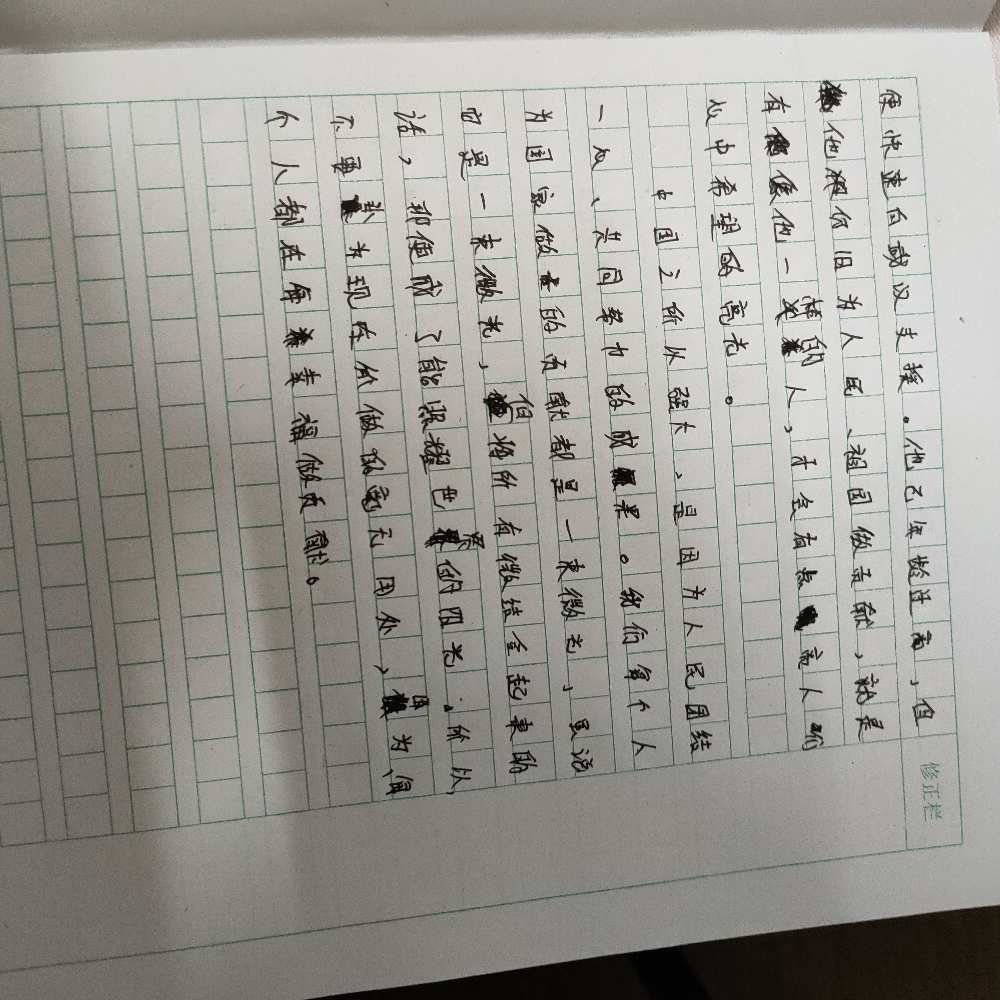 便快速向武汉支援。他己年龄过高,但
他依仍旧为人民、祖国做贡献,就是
有像他一样的人,才会有点亮人们
心中希望的亮光。
中国之所以强大,是因为人民团结
一心、共同努力的成果。我们每个人
为国家做的贡献都是一束微光,虽说
它是一束微光,但将所有微结合起来的
话,那便成了能照耀世界的阳光。所以,
不要认为现在你做的毫无用处,因为,每
个人都在每幸福做贡献。
修正栏